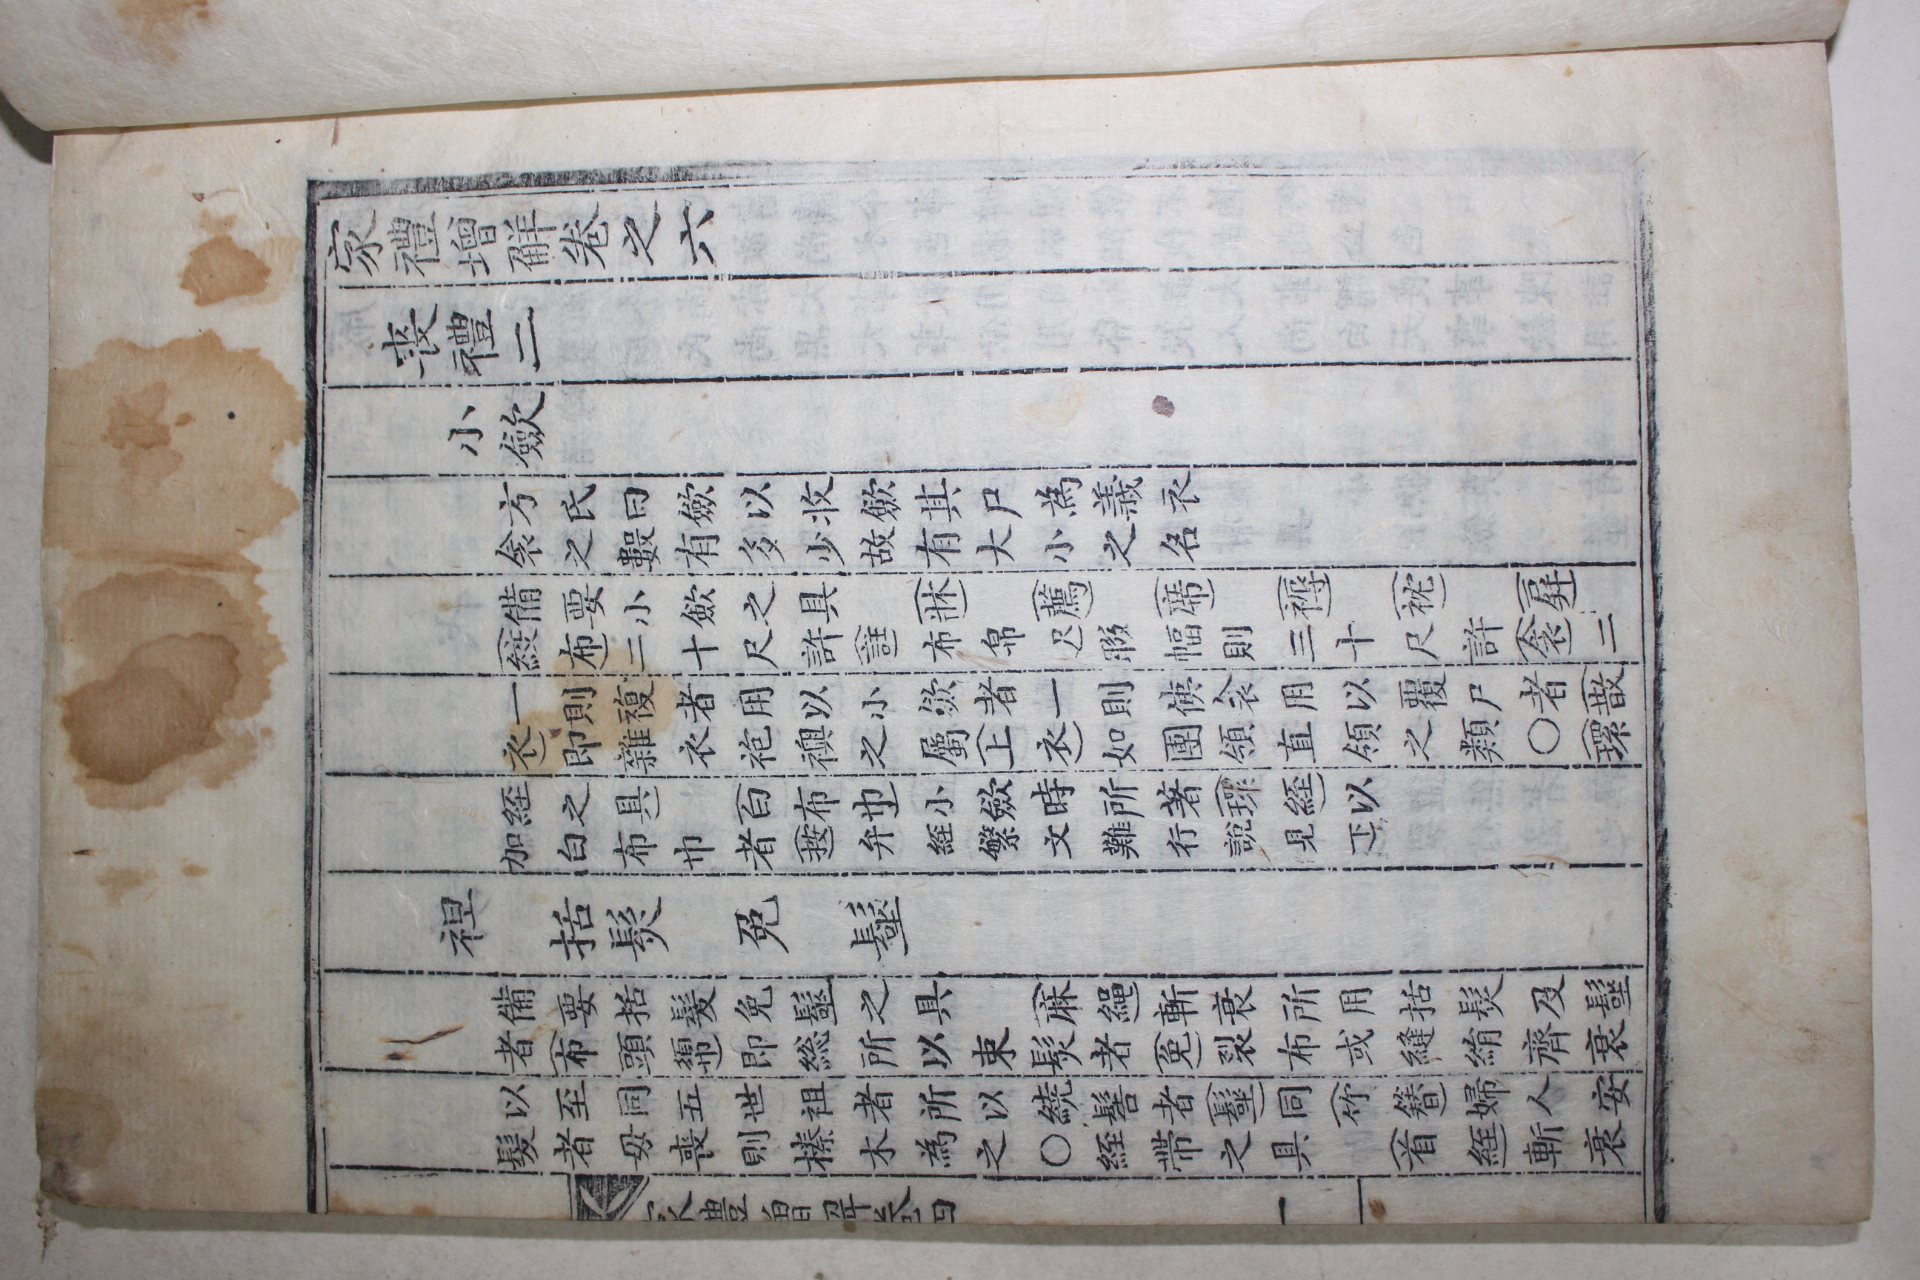 家禮增解卷之六
喪禮二
小斂
方氏曰斂以收斂其尸爲義衣
衾之數有多少故有大小之名
備要小斂之具(牀)(薦)(席)(褥)(枕)(屛)
(絞布)二十尺許(註)布帛尺聯幅則三十尺許(衾)二
一則複者用以小斂者一則使衾用以覆尸者(散
衣)即雜衣袍襖之屬(上衣)如團領直領之類〇(環
絰之具)(白布巾)小斂時所著(環絰)以
加白布巾者(按)弁絰繁文難行說見下
袒 括髮 免 髽
備要括髮免髽之具(麻繩)斬衰所用括髮及髽
者(布頭𢄼)即總所以束髮者(免)裂布或縫絹齊衰
以至同五世祖者所以繞髻者(髽)同(竹簪)婦人安
髮者毋喪則榛木為之〇絰帶之具(首絰)斬衰
家禮增解卷四
一